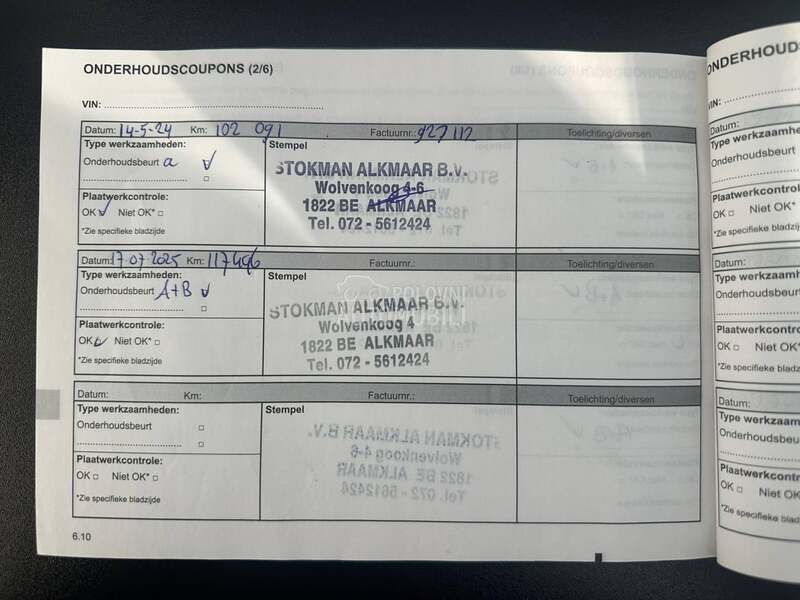 ONDERHOUDSCOUPONS (2/6)
VIN:
Datum: 14-5-24 Km: 102 091 Factuurnr.: 927112 Toelichting/diversen
Type werkzaamheden: Stempel
Onderhoudsbeurt a
STOKMAN ALKMAAR B.V.
Wolvenkoog 4-6
1822 BE ALKMAAR
Tel. 072 - 5612424
Plaatwerkcontrole:
OK Niet OK*
*Zie specifieke bladzijde
Datum: 17-07-2025 Km: 117496 Factuurnr.: Toelichting/diversen
Type werkzaamheden: Stempel
Onderhoudsbeurt A+B
STOKMAN ALKMAAR B.V.
Wolvenkoog 4
1822 BE ALKMAAR
Tel. 072 - 5612424
POLOVNI
AUTOMOBILI
Plaatwerkcontrole:
OK Niet OK*
*Zie specifieke bladzijde
Datum: Km: Factuurnr.: Toelichting/diversen
Type werkzaamheden: Stempel
Onderhoudsbeurt
Plaatwerkcontrole:
OK Niet OK*
*Zie specifieke bladzijde
6.10
ONDERHOUDS
VIN:
Datum:
Type werkzaamheden:
Onderhoudsbeurt
Plaatwerkcontrole
OK Niet OK*
*Zie specifieke bladzijde
Datum:
Type werkzaamheden:
Onderhoudsbeurt
Plaatwerkcontrole:
OK Niet OK*
*Zie specifieke bladzijde
Datum:
Type werkzaamheden
Onderhoudsbeurt
Plaatwerkcontrole
OK Niet OK
*Zie specifieke bladzijde